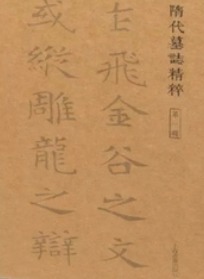 隋代墓誌精粹
第一種
士飛金谷之文
或縱雕龍之辯